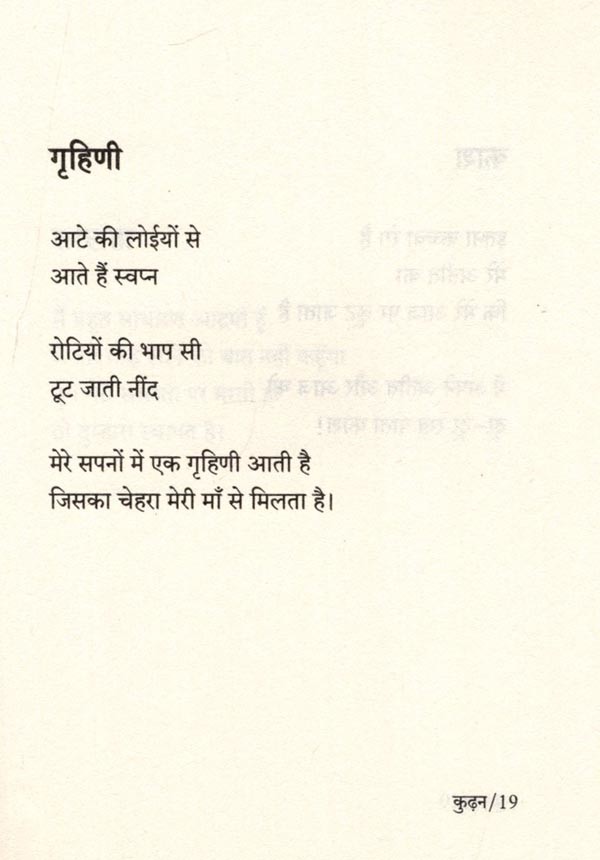 गृहिणी
आटे की लोईयों से
आते हैं स्वप्न
रोटियों की भाप सी
टूट जाती नींद
मेरे सपनों में एक गृहिणी आती है
जिसका चेहरा मेरी माँ से मिलता है।
कुढ़न/19